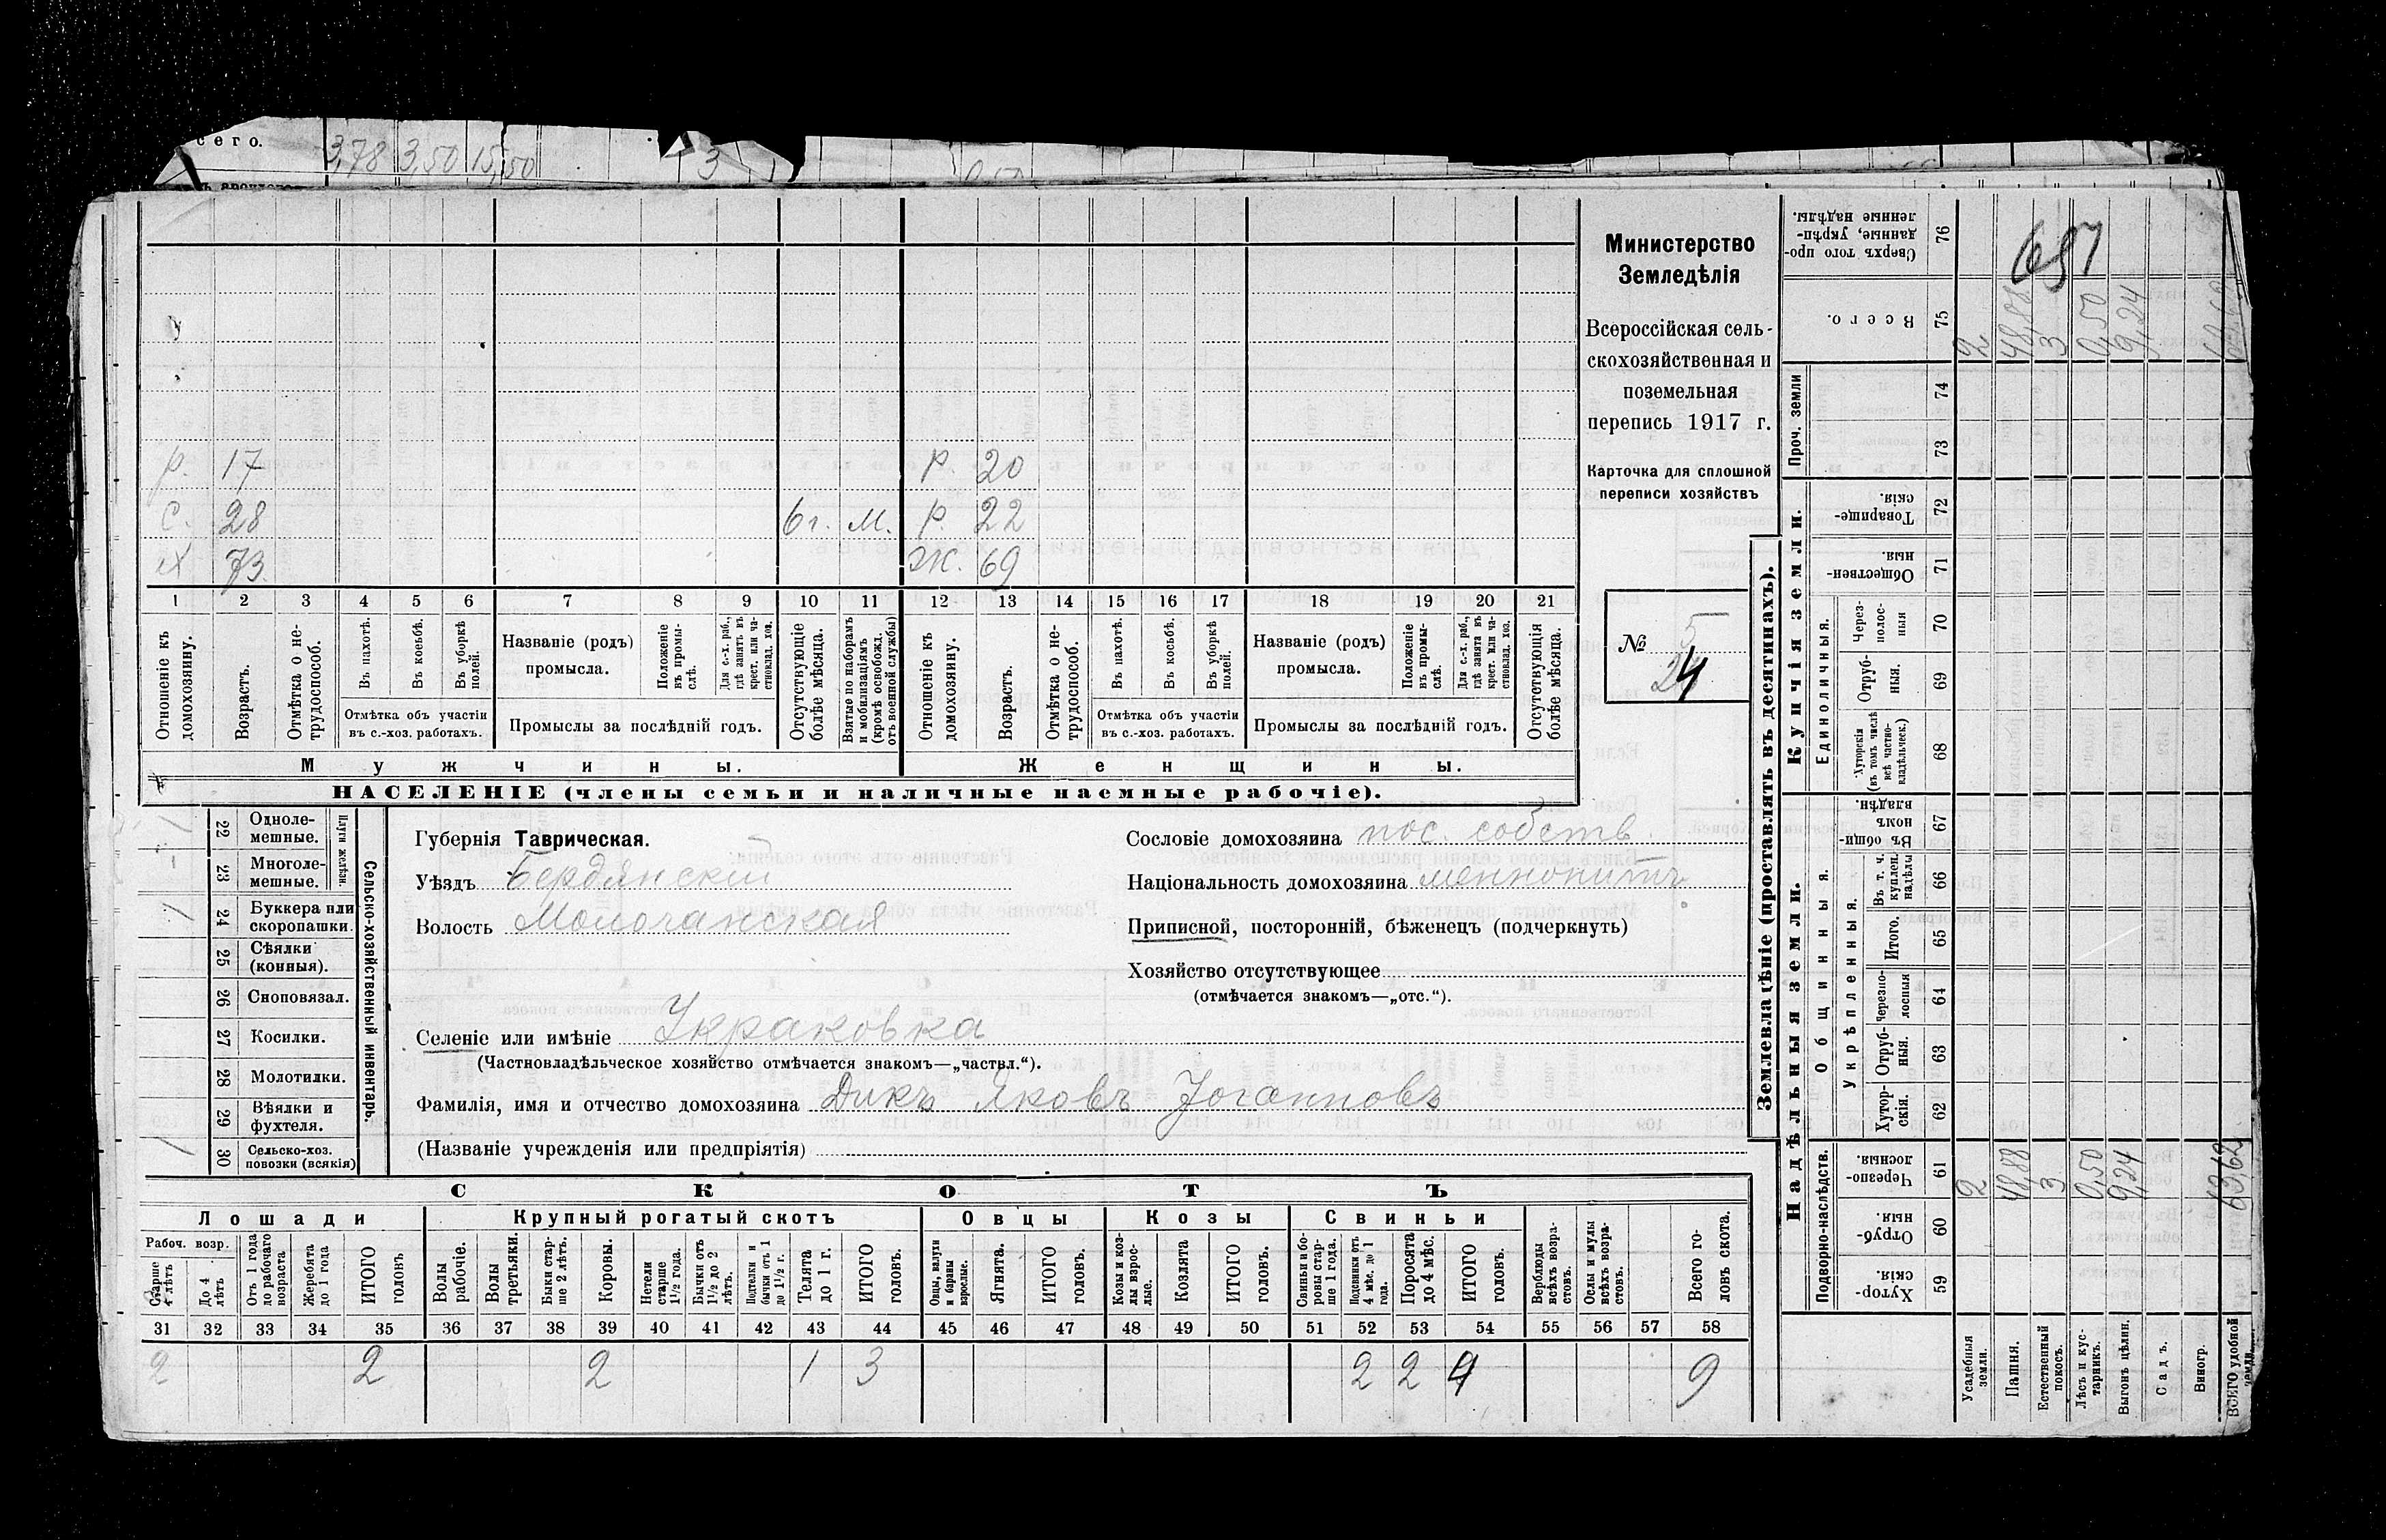 сего. 3,78 3,50 15,50 3
Министерство
Земледѣлія
Всероссійская сель-
скохозяйственная и
поземельная
перепись 1917 г.
Карточка для сплошной
переписи хозяйствъ
№ 5
24
р. 17 Р. 20
с. 28 6г. М. Р. 22
х 73 Ж. 69
1 2 3 4 5 6 7 8 9 10 11 12 13 14 15 16 17 18 19 20 21
Отношеніе къ домохозяину.
Возрастъ.
Отмѣтка о не-трудоспособ.
Въ пахотѣ.
Въ косьбѣ.
Въ уборкѣ полей.
Отмѣтка объ участіи
въ с.-хоз. работахъ.
Названіе (родъ)
промысла.
Положеніе въ промы-слѣ.
Для с.-х. раб., гдѣ занятъ въ крест. или ча-стновлад. хоз.
Промыслы за послѣдній годъ.
Отсутствующіе болѣе мѣсяца.
Взятые по наборамъ и мобилизаціямъ (кромѣ освобожд. отъ военной службы)
Отношеніе къ домохозяину.
Возрастъ.
Отмѣтка о не-трудоспособ.
Въ пахотѣ.
Въ косьбѣ.
Въ уборкѣ полей.
Отмѣтка объ участіи
въ с.-хоз. работахъ.
Названіе (родъ)
промысла.
Положеніе въ промы-слѣ.
Для с.-х. раб., гдѣ занята въ крест. или ча-стновлад. хоз.
Промыслы за послѣдній годъ.
Отсутствующія болѣе мѣсяца.
Мужчины. Женщины.
НАСЕЛЕНІЕ (члены семьи и наличные наемные рабочіе).
Сельско-хозяйственный инвентарь.
Плуги желѣзн.
22 Одноле-мешные. 1
23 Многоле-мешные. -
24 Буккера или скоропашки. 1
25 Сѣялки (конныя).
26 Сноповязал.
27 Косилки.
28 Молотилки.
29 Вѣялки и фухтеля.
30 Сельско-хоз. повозки (всякія) 1
Губернія Таврическая.
Уѣздъ Бердянскій
Волость Молочанская
Селеніе или имѣніе
(Частновладѣльческое хозяйство отмѣчается знакомъ—„частвл.“).
Фамилія, имя и отчество домохозяина Дикъ Яковъ Іоганновъ
(Названіе учрежденія или предпріятія)
Сословіе домохозяина пос. собств.
Національность домохозяина меннонитъ
Приписной, посторонній, бѣженецъ (подчеркнуть)
Хозяйство отсутствующее
(отмѣчается знакомъ—„отс.“).
СКОТЪ
Лошади Крупный рогатый скотъ Овцы Козы Свиньи
Рабоч. возр.
Старше 4 лѣтъ
До 4 лѣтъ
Отъ 1 года до рабочаго возраста
Жеребята до 1 года
ИТОГО головъ
Волы рабочіе.
Волы третьяки.
Быки стар-ше 2 лѣтъ.
Коровы.
Нетели старше 1½ года.
Бычки отъ 1½ до 2 лѣтъ.
Подтелки и бычки отъ 1 до 1½ г.
Телята до 1 г.
ИТОГО головъ.
Овцы, валухи и бараны взрослые.
Ягнята.
ИТОГО головъ.
Козы и коз-лы взрос-лые.
Козлята
ИТОГО головъ.
Свиньи и бо-ровы стар-ше 1 года.
Подсвинки отъ 4 мѣс. до 1 года.
Поросята до 4 мѣс.
ИТОГО головъ.
Верблюды всѣхъ возра-стовъ.
Ослы и мулы всѣхъ возра-стовъ.
Всего го-ловъ скота.
31 32 33 34 35 36 37 38 39 40 41 42 43 44 45 46 47 48 49 50 51 52 53 54 55 56 57 58
2 2 2 1 3 2 2 4 9
Землевладѣніе (проставлять въ десятинахъ).
Надѣльныя земли. Купчія земли. Проч. земли
Подворно-наслѣдств.
Общинныя.
Укрѣпленныя.
Единоличныя.
Хутор-скія. 59
Отруб-ныя. 60
Черезпо-лосныя. 61
Хутор-скія. 62
Отруб-ныя. 63
Черезпо-лосныя 64
Итого. 65
Въ т. ч. куплен. надѣлы 66
Въ общи-номъ владѣн. 67
Хуторскія (въ томъ числѣ всѣ частно-владѣльческ.) 68
Отруб-ныя. 69
Через-полос-ныя 70
Обществен-ныя. 71
Товарище-скія. 72
73
74
Всего. 75
Сверхъ того про-данные, укрѣп-ленные надѣлы. 76
657
Усадебныя земли. 2 2
Пашня. 48,88 48,88
Естественный покосъ. 3 3
Лѣсъ и кус-тарникъ. 0,50 0,50
Выгонъ цѣлин. 9,24 9,24
Садъ.
Виногр.
ВСЕГО удобной земли. 63,62